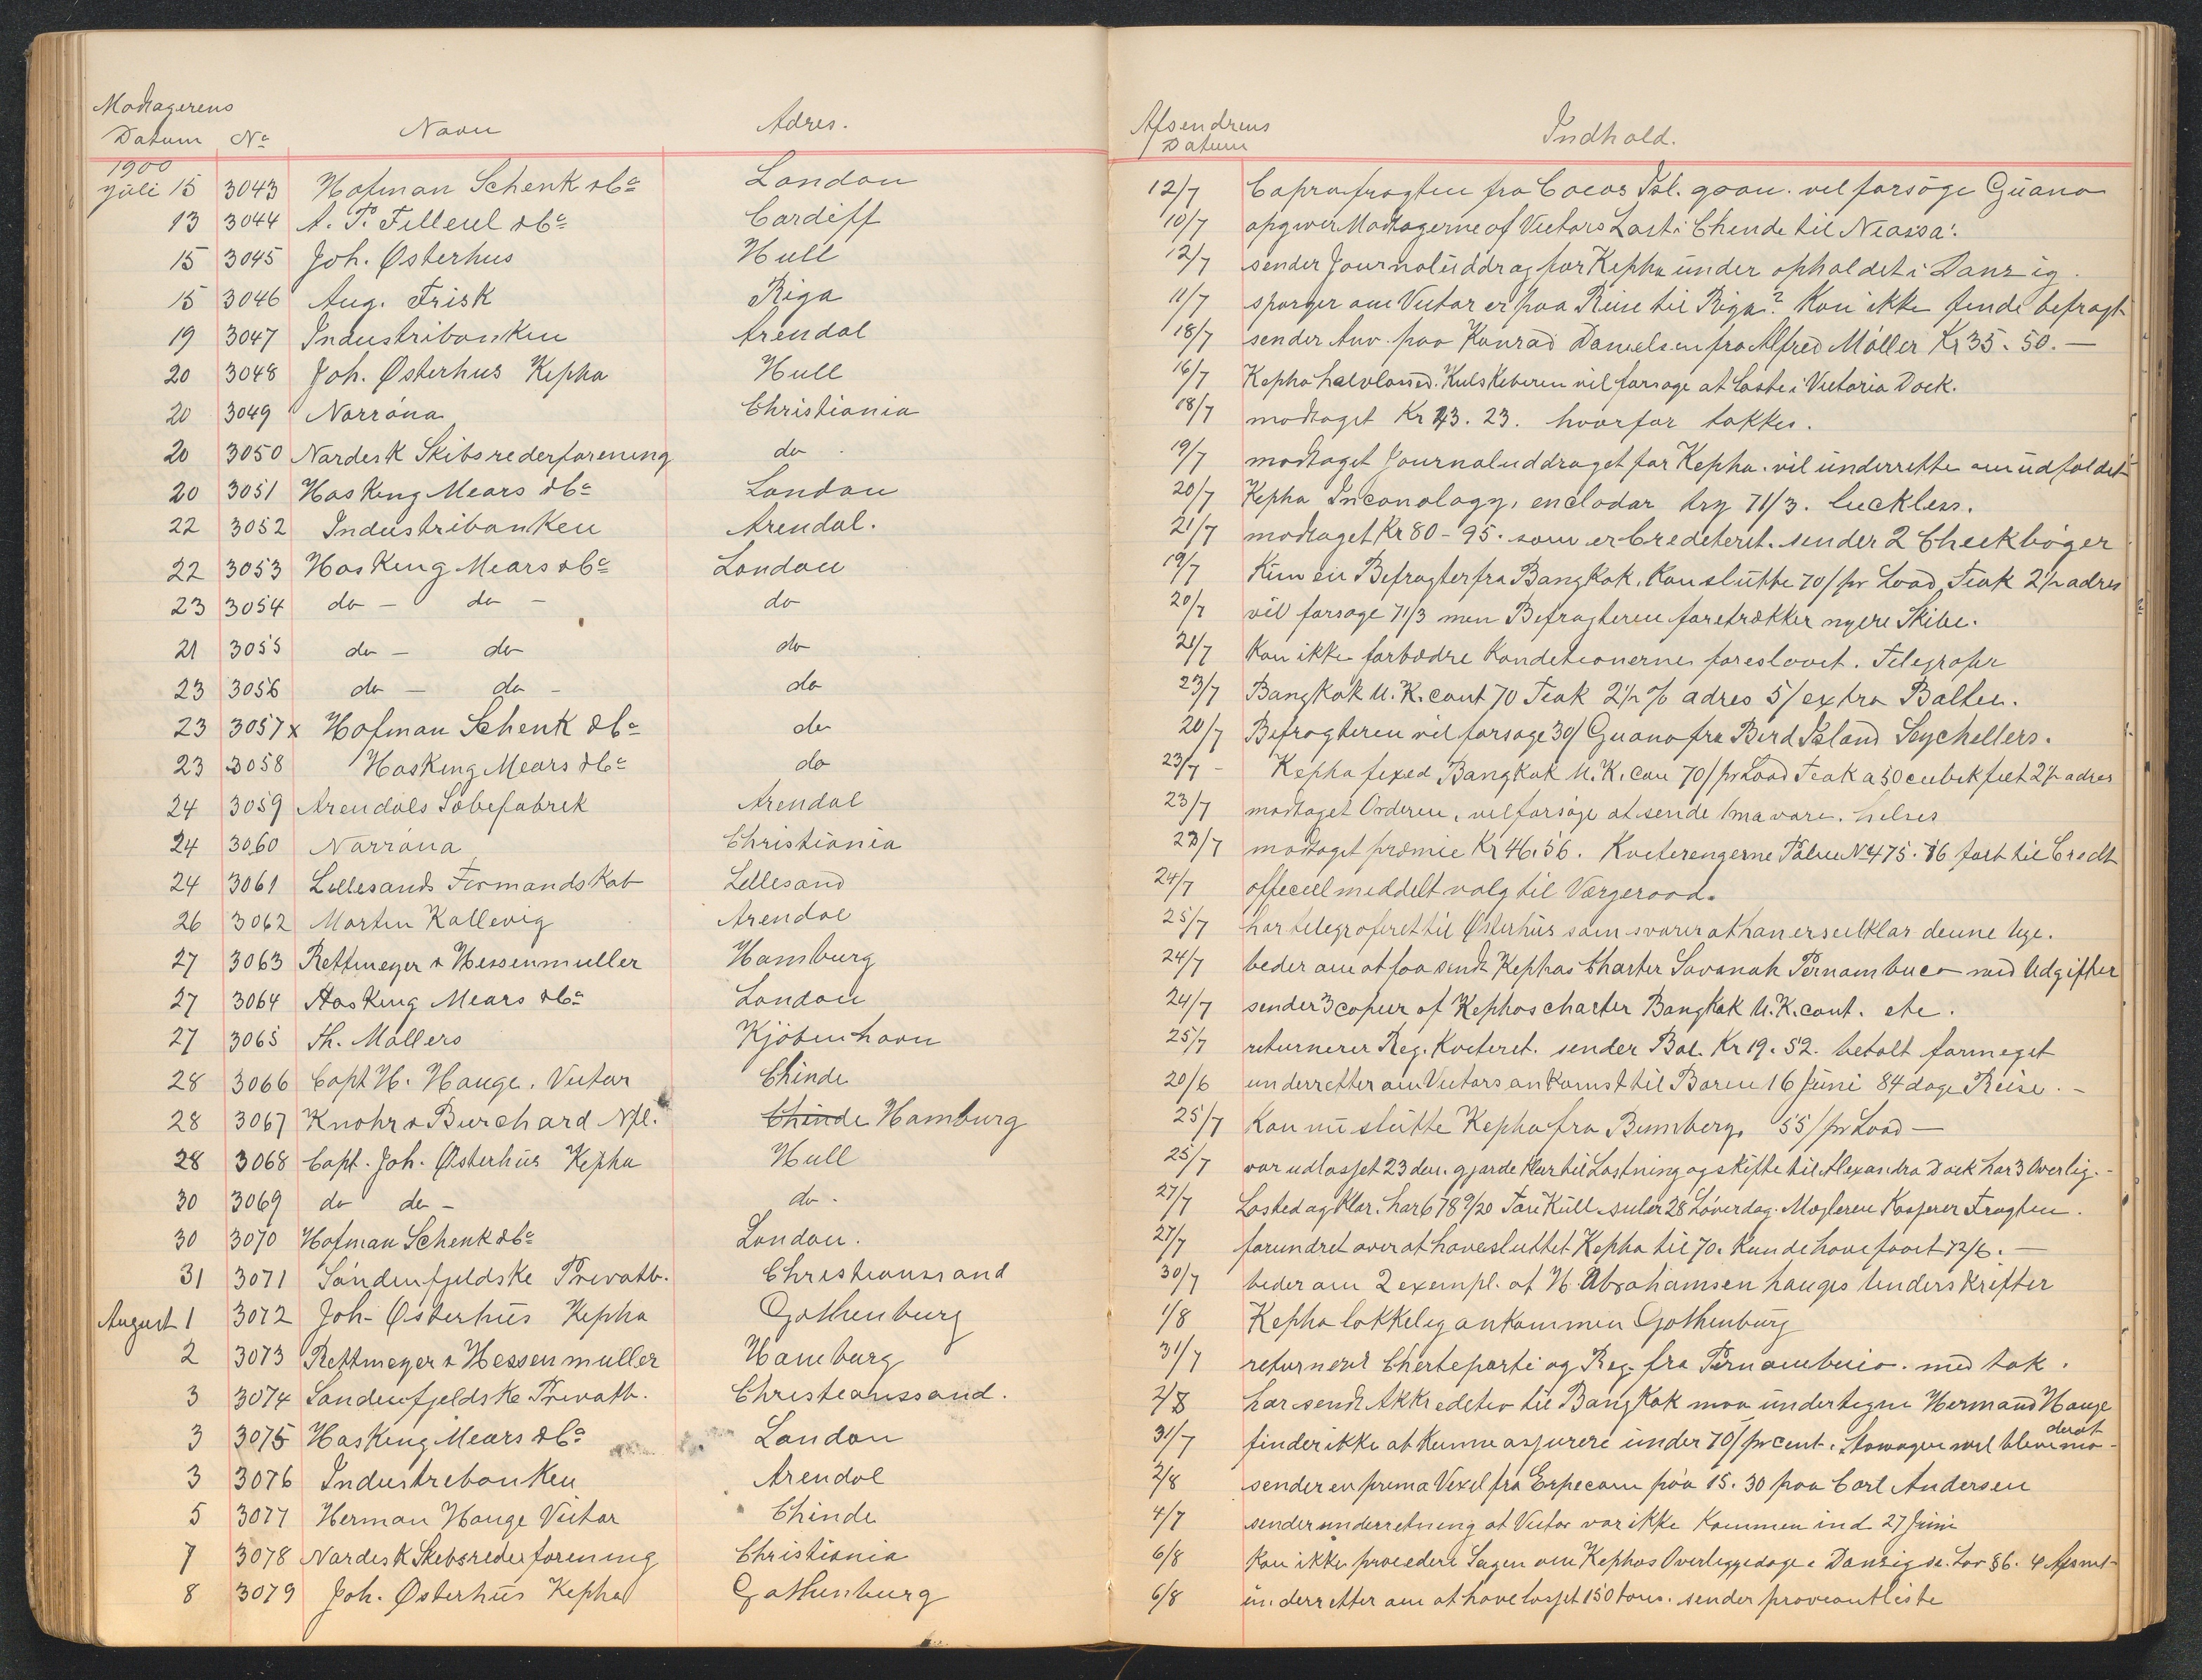 Modtagerens
Datum No Navn Adres. Afsendrens Datum Indhold.
1900
Juli 15 3043 Hofman Schenk & Co London 12/7 Coprafragten fra Cocos Isl. gaar. vil forsöge Guano
13 3044 A. P. Filleul & Co Cardiff 10/7 opgiver Modtagerne af Victors Last i Chinde til Neassa.
15 3045 Joh. Østerhus Hull 12/7 sender Journaluddrag for Kepha under opholdet i Danzig.
15 3046 Aug. Frisk Riga 11/7 spørger om Victor er paa Reise til Riga? Kan ikke finde befragt
19 3047 Industribanken Arendal 18/7 sender Anv. paa Konrad Danielsen fra Alfred Möller Kr 35.50.—
20 3048 Joh. Østerhus Kepha Hull 16/7 Kepha halvlosset. Kulskiberen vil forsøge at laste i Victoria Dock.
20 3049 Norröna Christiania 18/7 modtaget Kr 43.23. hvorfor takkes.
20 3050 Nordisk Skibsrederforening do 19/7 modtaget Journaluddraget for Kepha. vil underrette om udfaldet
20 3051 Hasking Mears & Co London 20/7 Kepha Inconology, enclodar try 71/3. luckless.
22 3052 Industribanken Arendal. 21/7 modtaget Kr 80-95. som er Crediteret. sender 2 Checkbøger
22 3053 Hasking Mears & Co London 19/7 Kun ein Befragter fra Bangkok. Kan slutte 70/ pr Load, Teak 2½ adres
23 3054 do - do - do 20/7 vil forsøge 71/3 men Befragteren foretrækker nyere Skibe.
21 3055 do - do do 21/7 Kan ikke forbedre Konditionerne foreslaaet. Telegrafer
23 3056 do - do - do 23/7 Bangkok U.K. cont 70 Teak 2½ % adres 5/ extra Baltic.
23 3057x Hofman Schenk & Co do 20/7 Befragteren vil forsøge 30/ Guano fra Bird Island Seychellers.
23 3058 Hasking Mears & Co do 23/7 - Kepha fixed Bangkok U.K. con 70/ pr Load Teak a 50 cubikfeet 2½ adres
24 3059 Arendals Sæbefabrik Arendal 23/7 modtaget Orderen, vil forsøge at sende 1ma vare. hilses
24 3060 Norröna Christiania 23/7 modtaget præmie Kr 46.56. Kviteringerne Police No 475.76 ført til Credit
24 3061 Lillesands Formandskab Lillesand 24/7 officiel meddelt valg til Værgeraad.
26 3062 Morten Kallevig Arendal 25/7 har telegraferet til Østerhus som svarer at han er seilklar denne Uge.
27 3063 Rettmeyer & Hessenmuller Hamburg 24/7 beder om at faa sendt Kephas Charter Savanah Pernambuco med Udgifter
27 3064 Hasking Mears & Co London 24/7 sender 3 copier af Kephas charter Bangkok U.K. cont. etc.
27 3065 Th. Möllers Kjöbenhavn 25/7 returnerer Reg. Kviteret. sender Bal. Kr 19.52. betalt formeget
28 3066 Capt H. Hauge. Victor Chinde 20/6 underretter om Victors ankomst til Baren 16 Juni 84 dage Reise.-
28 3067 Knohr & Burchard Nfl. Chinde Hamburg 25/7 Kan nu slutte Kepha fra Bunnberg. 55/ pr Load —
28 3068 Capt. Joh. Østerhus Kepha Hull 25/7 var udlosset 23 den. gjorde klar til Lastning og skifte til Alexandra Dock har 3 Overlig.-
30 3069 do do - do. 27/7 Lasted og klar. har 678 9/20 Ton Kull. seiler 28 Löverdag. Mægleren Kasserer Fragten.
30 3070 Hofman Schenk & Co London. 27/7 forundret over at have sluttet Kepha til 70. Kunde have faaet 72/6.—
31 3071 Söndenfjeldske Privatb. Christianssand 30/7 beder om 2 exempl. af H. Abrahamsen Hauges Underskrifter
August 1 3072 Joh. Østerhus Kepha Gothenburg 1/8 Kepha lykkelig ankommen Gothenburg
2 3073 Rettmeyer & Hessenmuller Hamburg 31/7 returneret Cherteparti og Reg. fra Pernambuco. med tak.
3 3074 Söndenfjeldske Privatb. Christianssand. 2/8 har sendt Akkreditiv til Bangkok maa undertegne Hermand Hauge
3 3075 Hasking Mears & Co London 31/7 finder ikke at kunne assurere under 70/ pr cent. Stowagen vil blive moderat
3 3076 Industribanken Arendal 2/8 sender en prima Vexel fra Erpecom paa 15.30 paa Carl Andersen
5 3077 Herman Hauge Victor Chinde 4/7 sender underretning at Victor var ikke kommen ind 27 Juni
7 3078 Nordisk Skibsrederforening Christiania 6/8 Kan ikke procedere Sagen om Kephas Overliggedage i Danzig se. Lov §6. 4 Afsnit
8 3079 Joh. Østerhus Kepha Gothenburg 6/8 underretter om at have losset 150 tons. sender proviantliste